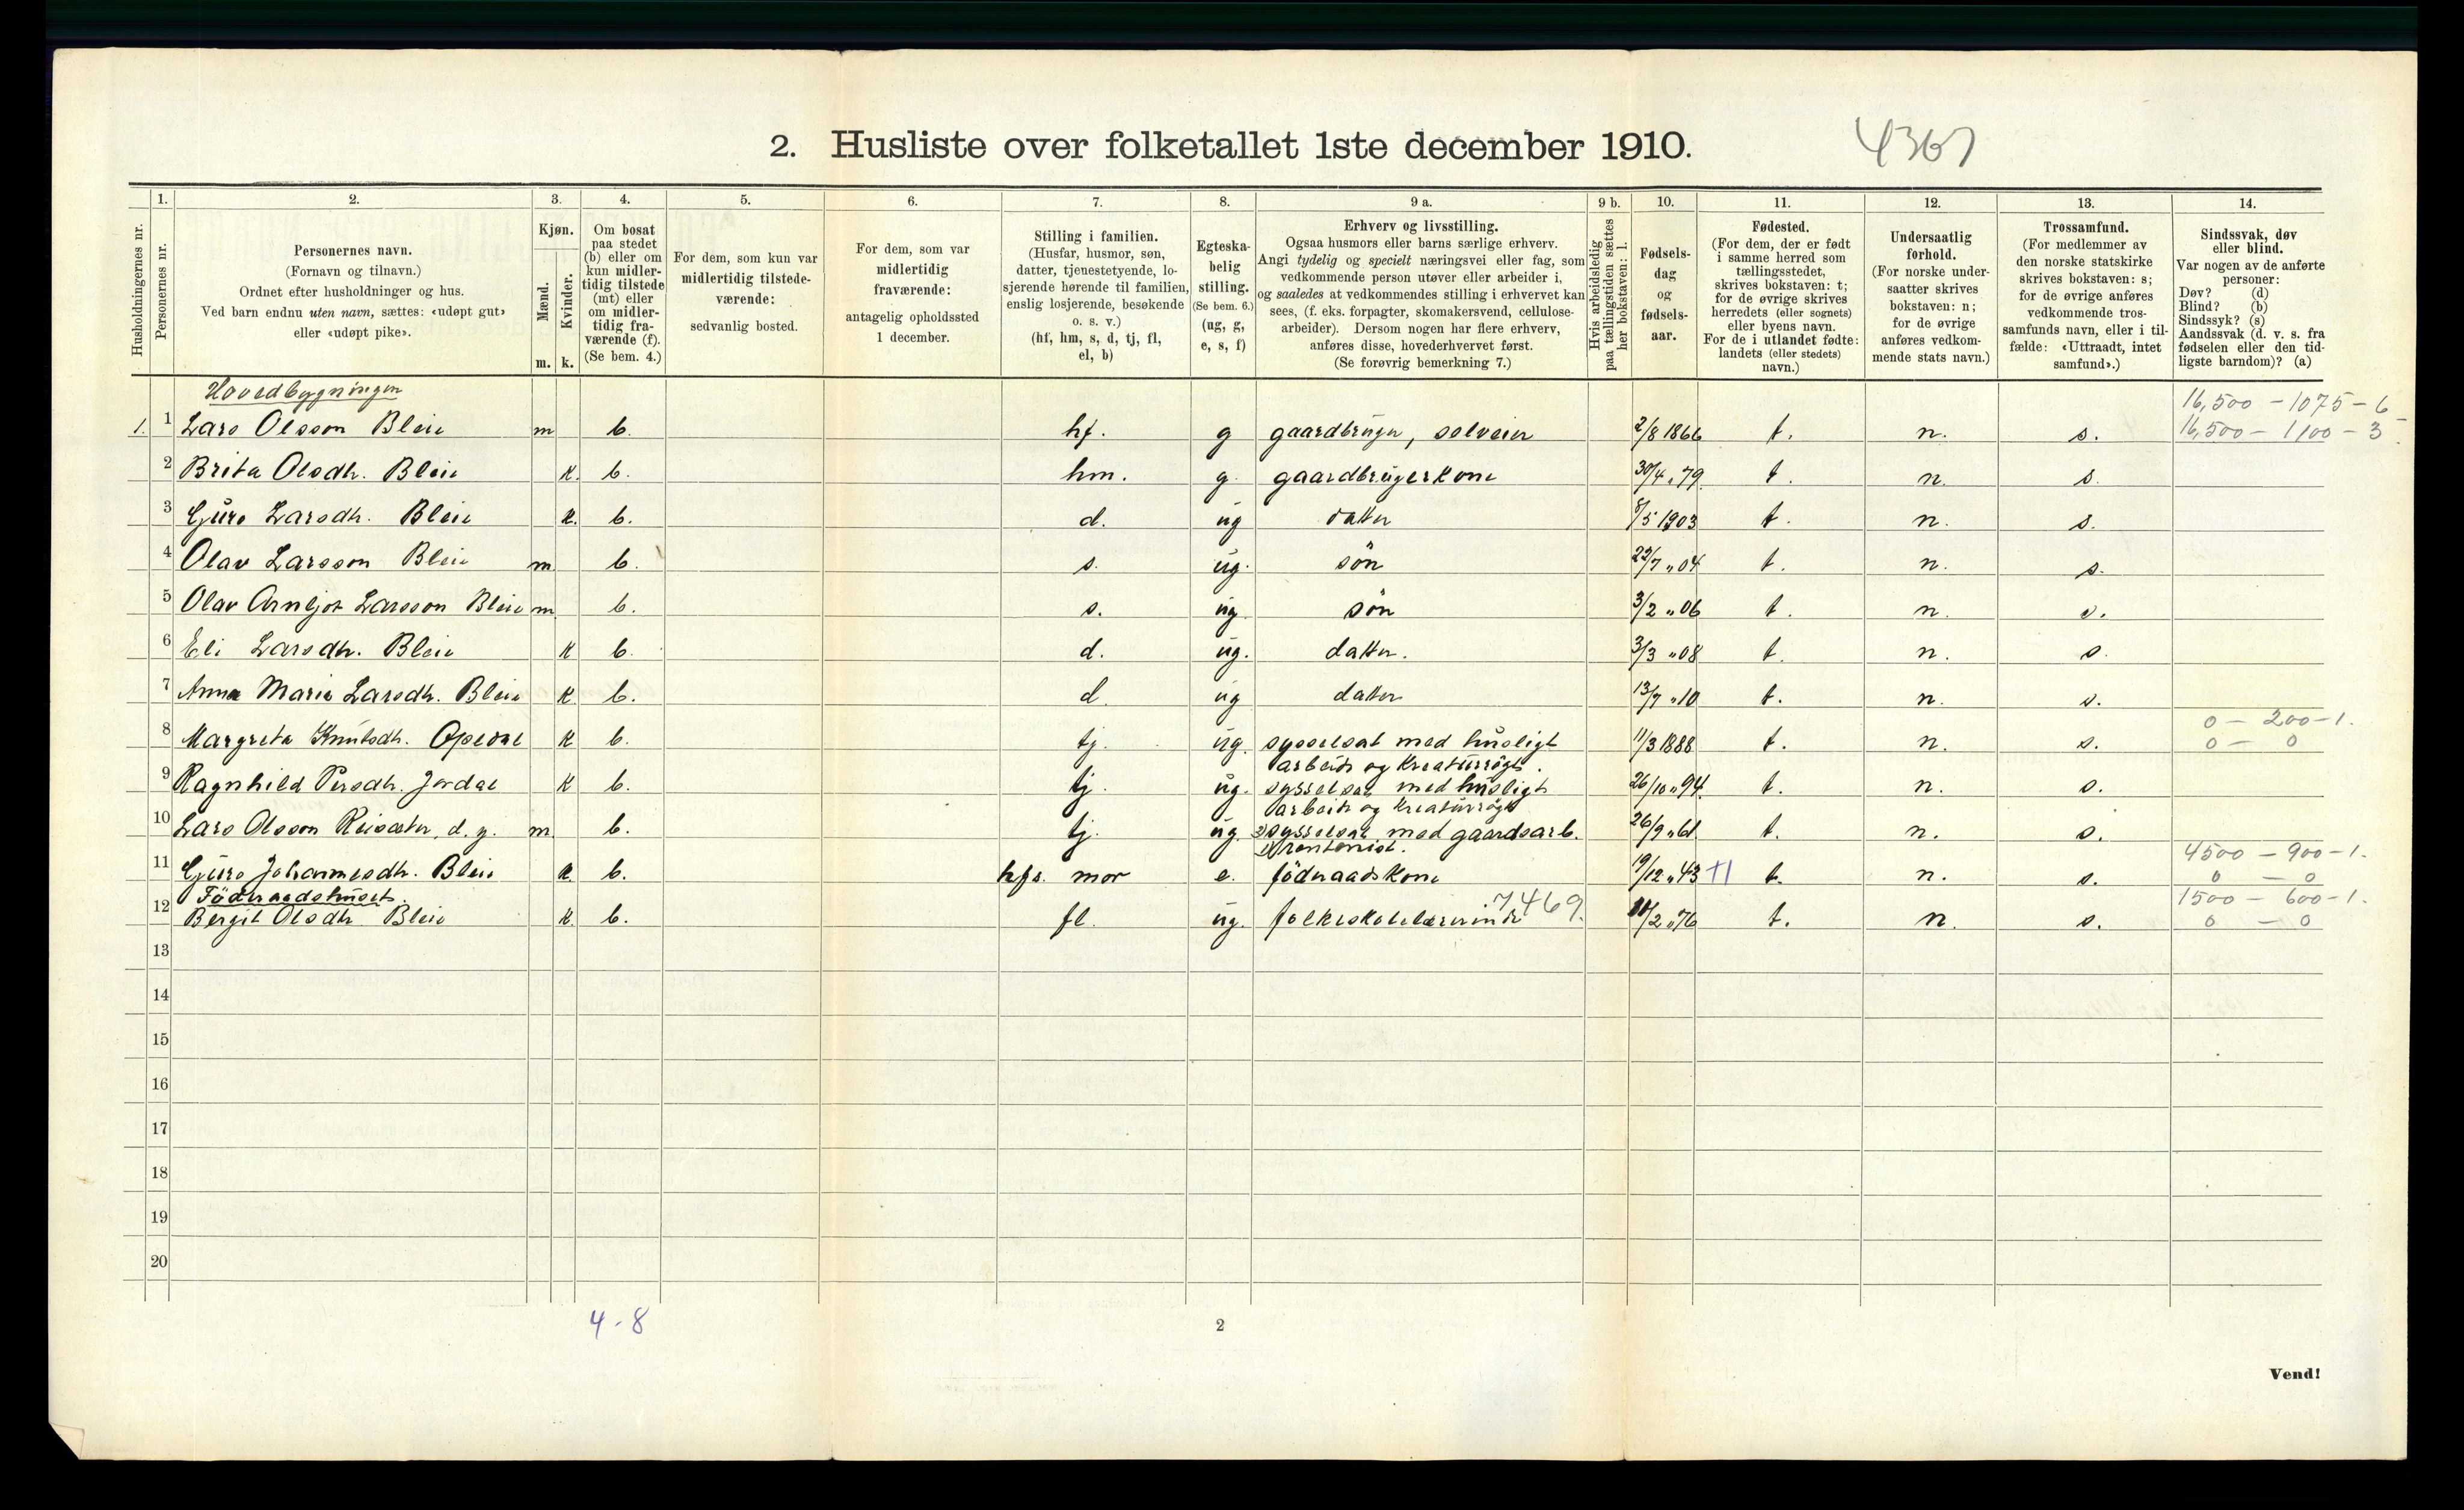 2. Husliste over folketallet 1ste december 1910.
4367
Husholdningernes nr.
1.
Personernes nr.
2.
Personernes navn.
(Fornavn og tilnavn.)
Ordnet efter husholdninger og hus.
Ved barn endnu uten navn, sættes: «udøpt gut»
eller «udøpt pike».
3.
Kjøn.
Mænd.
Kvinder.
m. k.
4.
Om bosat
paa stedet
(b) eller om
kun midler-
tidig tilstede
(mt) eller
om midler-
tidig fra-
værende (f).
(Se bem. 4.)
5.
For dem, som kun var
midlertidig tilstede-
værende:
sedvanlig bosted.
6.
For dem, som var
midlertidig
fraværende:
antagelig opholdssted
1 december.
7.
Stilling i familien.
(Husfar, husmor, søn,
datter, tjenestetyende, lo-
sjerende hørende til familien,
enslig losjerende, besøkende
o. s. v.)
(hf, hm, s, d, tj, fl,
el, b)
8.
Egteska-
belig
stilling.
(Se bem. 6.)
(ug, g,
e, s, f)
9 a.
Erhverv og livsstilling.
Ogsaa husmors eller barns særlige erhverv.
Angi tydelig og specielt næringsvei eller fag, som
vedkommende person utøver eller arbeider i,
og saaledes at vedkommendes stilling i erhvervet kan
sees, (f. eks. forpagter, skomakersvend, cellulose-
arbeider). Dersom nogen har flere erhverv,
anføres disse, hovederhvervet først.
(Se forøvrig bemerkning 7.)
9 b.
Hvis arbeidsledig
paa tællingstiden sættes
her bokstaven: l.
10.
Fødsels-
dag
og
fødsels-
aar.
11.
Fødested.
(For dem, der er født
i samme herred som
tællingsstedet,
skrives bokstaven: t;
for de øvrige skrives
herredets (eller sognets)
eller byens navn.
For de i utlandet fødte:
landets (eller stedets)
navn.)
12.
Undersaatlig
forhold.
(For norske under-
saatter skrives
bokstaven: n;
for de øvrige
anføres vedkom-
mende stats navn.)
13.
Trossamfund.
(For medlemmer av
den norske statskirke
skrives bokstaven: s;
for de øvrige anføres
vedkommende tros-
samfunds navn, eller i til-
fælde: «Uttraadt, intet
samfund».)
14.
Sindssvak, døv
eller blind.
Var nogen av de anførte
personer:
Døv? (d)
Blind? (b)
Sindssyk? (s)
Aandssvak (d. v. s. fra
fødselen eller den tid-
ligste barndom)? (a)
Hovedbygningen
16,500 - 1075 - 6
1. 1 Lars Olsson Bleie m b. hf. g gaardbruger, selveier 2/8 1866 t. n. s. 16,500 - 1100 - 3
2 Brita Olsdh. Bleie k. b. hm. g. gaardbrugerkone 30/4 „ 79. t. n. s.
3 Guro Larsdh. Bleie k. b. d. ug datter 8/5 1903 t. n. s.
4 Olav Larsson Bleie m b. s. ug. søn 22/7 „ 04 t. n. s.
5 Olav Arnljot Larsson Bleie m b. s. ug søn 3/2 „ 06 t. n. s.
6 Eli Larsdh. Bleie k b. d. ug. datter. 3/3 „ 08 t. n. s.
7 Anna Maria Larsdh. Bleie k b. d. ug datter 13/7 „ 10 t. n. s.
0 - 200 - 1.
8 Margreta Knutsdh. Opedal k b. tj. ug. sysselsat med husligt 11/3 1888 t. n. s. 0 - 0
arbeide og kreaturrøgt.
9 Ragnhild Persdh. Jordal k b. tj. ug. sysselsat med husligt 26/10 „ 94. t. n. s.
arbeide og kreaturrøgt
10 Lars Olsson Reisæter, d. y. m b. tj. ug. 2) sysselsat med gaardsarb. 26/9 „ 61. t. n. s.
1) rentenist.
4500 - 900 - 1.
11 Guro Johannesdh. Bleie k. b. hfs. mor e. födraadskone 19/12 „ 43 t. n. s. 0 - 0
Födraadshuset.
7469.
1500 - 600 - 1.
12 Bergit Olsdh Bleie k. b. fl. ug. folkeskolelærerinde 11/2 „ 76 t. n. s. 0 - 0
13
14
15
16
17
18
19
20
4 - 8
2
Vend!